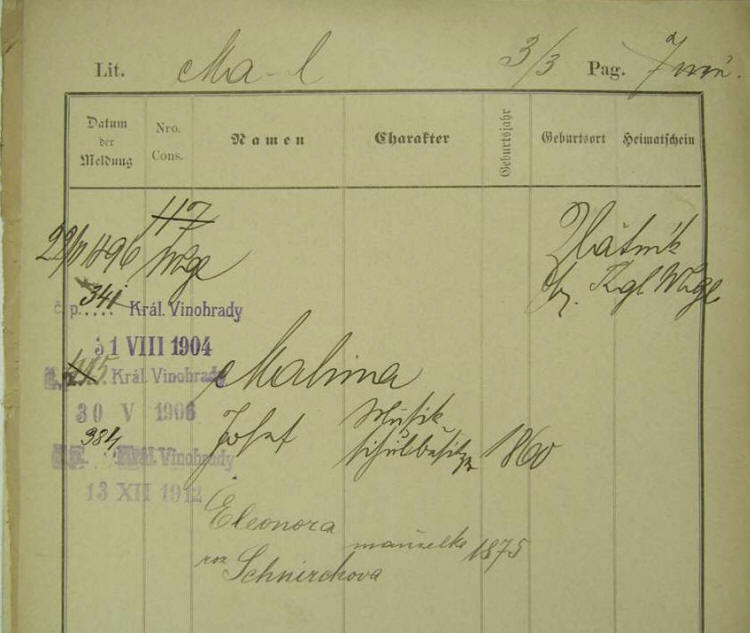 Lit. Ma-l 3/3 Pag.
Datum
der
Meldung
Nro.
Cons.
Namen
Charakter
Geburtsjahr
Geburtsort
Heimatschein
117
1896 Wbge
Zlátník
Bz. Kgl Wbge
č. p. 341 Král. Vinohrady
31 VIII 1904
Král. Vinohrady
30 V 1906
Malina
Josef Musik-
schulbesitzer 1860
Král. Vinohrady
13 XII 1912
Eleonora manželka 1875
roz Schnirchova